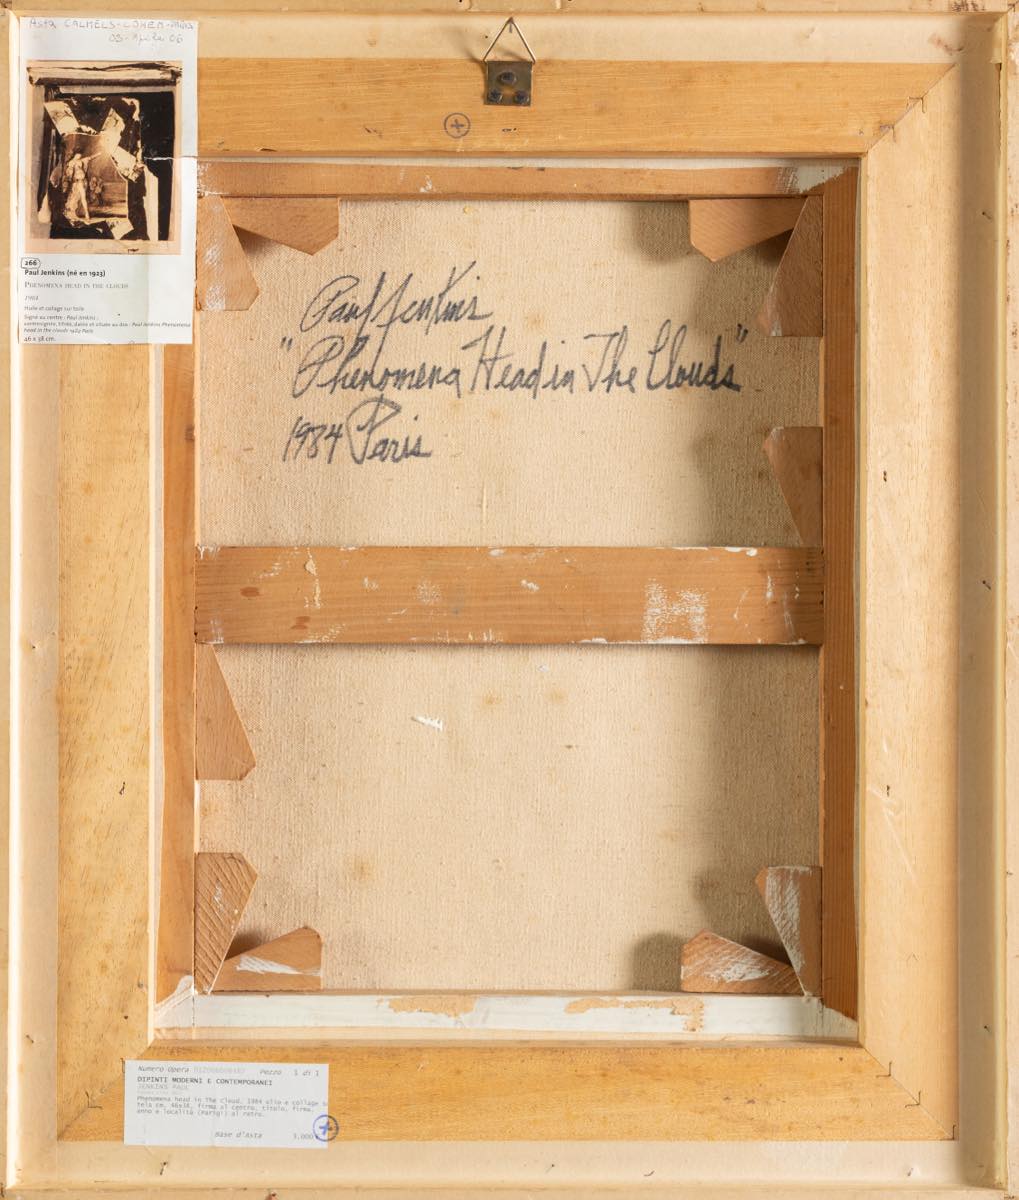 Asta CALMELS-COHEN-Paris
03-Aprile 06
266
Paul Jenkins (né en 1923)
PHENOMENA HEAD IN THE CLOUDS
1984
Huile et collage sur toile
Signé au centre : Paul Jenkins ;
contresignée, titrée, datée et située au dos : Paul Jenkins Phenomena
head in the clouds 1984 Paris
46 x 38 cm.
Paul Jenkins
"Phenomena Head in The Clouds"
1984 Paris
Numero Opera Pezzo 1 di 1
DIPINTI MODERNI E CONTEMPORANEI
JENKINS PAUL
Phenomena head in The Cloud, 1984 olio e collage su
tela cm. 46x38, firma al centro, titolo, firma,
anno e località (Parigi) al retro.
Base d'Asta 3.000